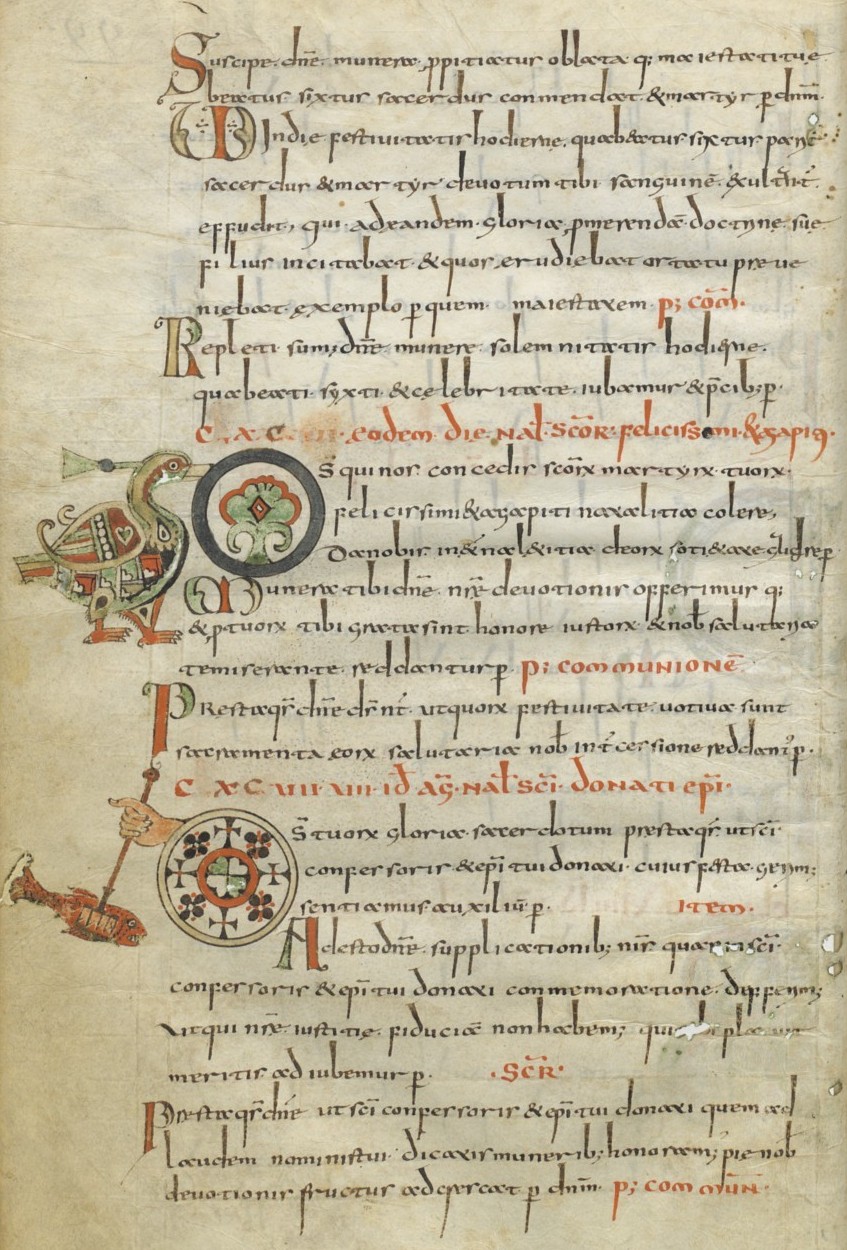 Suscipe. dñe. munera. ppitiatur oblata q; maiestati tue
beatur. sixtur sacerdur conmendat. & martyr p dnm̄.
VD In die festiuitatir hodierne. qua beatur sixtur
sacerdur & martyr deuotum tibi sanguinē. exultant̄.
effudit, qui ad eandem. gloriā. pmerendā. doctrine. sue
filiur incitabat. & quor. erudiebat ortatu preue
niebat. exemplo p quem. maiestatem. p; com̄.
Repleti. sum; dñe. munere. solemnitatir hodierne.
qua beati. syxti. & celebritate. iubamur & p̄cib; p.
C. X. C. eodem. die. nat̄. scōr. felicissimi. & agapiti.
DS qui nor. concedir scōrx martyrx. tuorx.
felicirsimi & agapiti natalitia colere,
Da nobir. in &̄nal & itia deorx soti&ate. gaudere p
Munera tibi dñe. nr̄e. deuotionir offerimur q;
& p tuorx tibi grata sint. honore iustorx & nob̄ salutaria
te miserante. reddantur p. p; communionē
Prestaqr̄. dñe dr̄ nr̄. ut quorx festiuitate. uotiua sunt
sacramenta. eorx salutaria nob̄ int̄cessione reddant̄ p.
C X C VIII. VIII. id̄ ag̃. nat̄ sc̄i. donati ep̄i.
DS̄ tuorx gloria. sacerdotum prestaqr̄. ut sc̄i.
confessorir & ep̄i tui donati. cuiur festa gerim;
sentiamur auxiliū p. Item.
Adesto dñe. supplicationib; nr̄ir. quar in sc̄i.
confessorir & ep̄i tui donati conmemoratione. deferim;
ut qui nr̄e. iustitie. fiduciā non habem;
meritir adiubemur p. .Scr̄.
Prestaqr̄ dñe ut sc̄i confessorir & ep̄i tui donati quem ad
laudem nominir tui. dicatir munerib; honoram; pie nob̄
deuotionir fructur adcrescat p dnm̄. p; commūn̄.